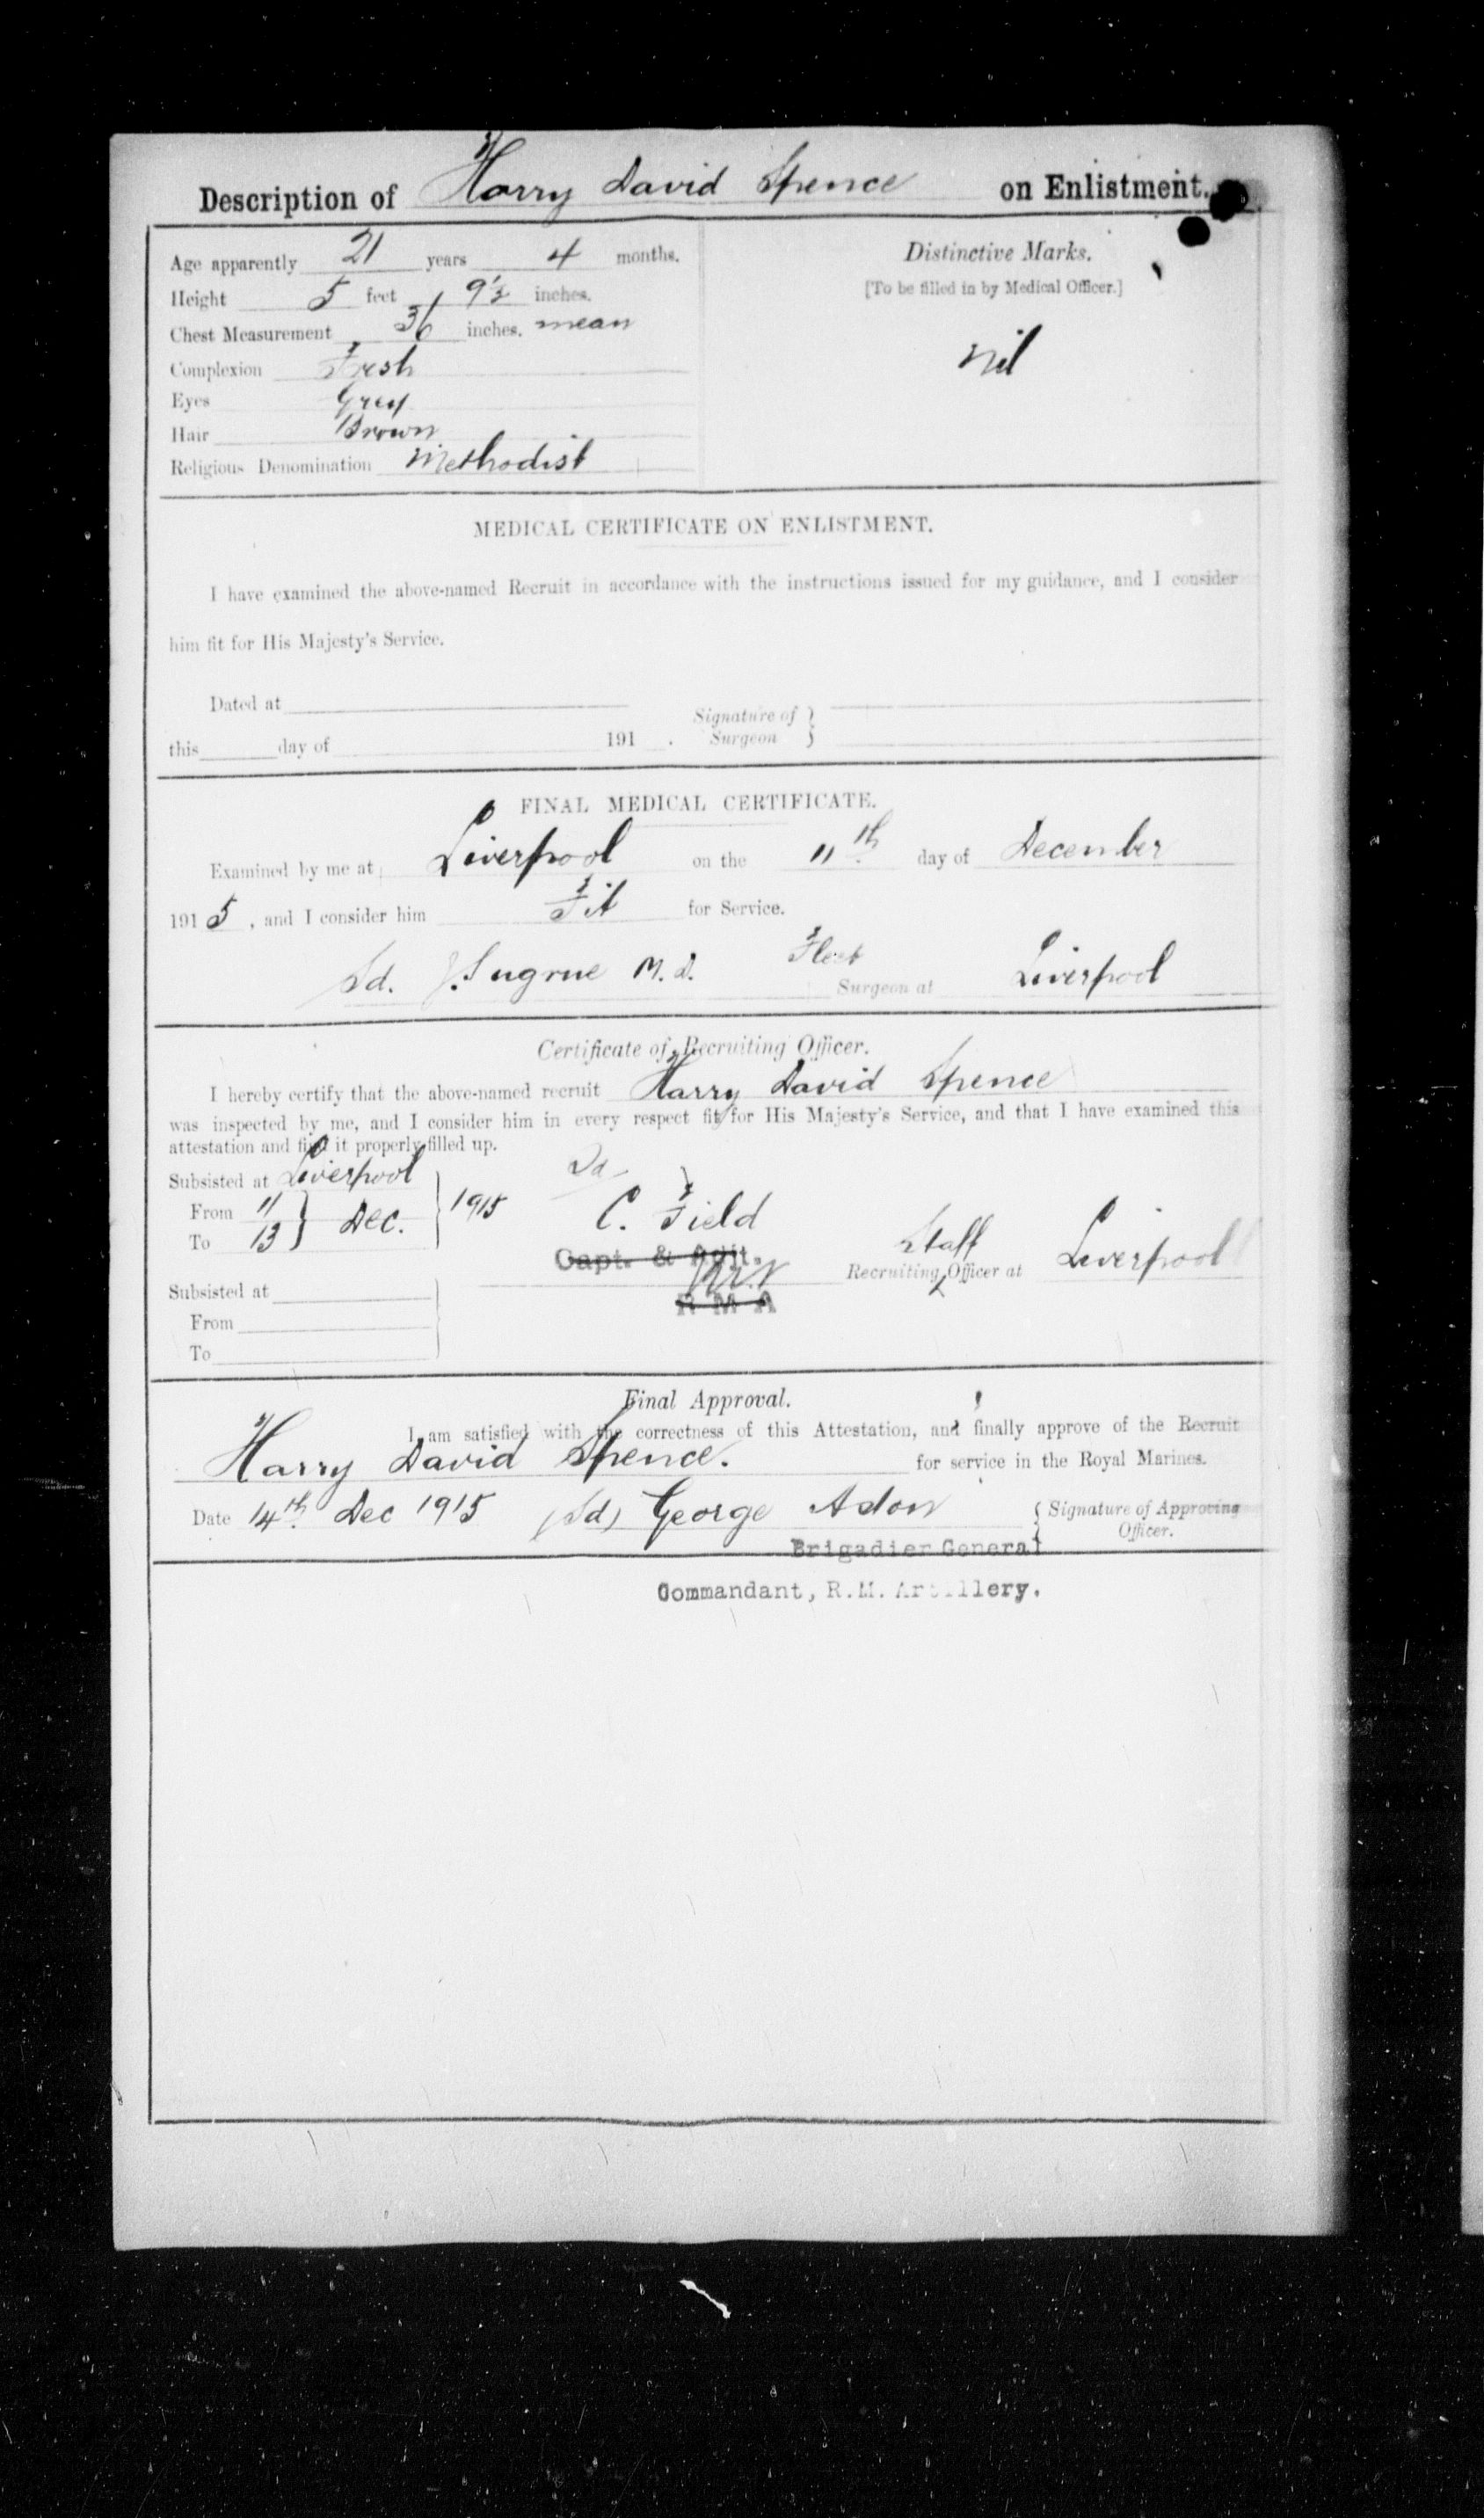 Description of Harry David Spence on Enlistment.
Age apparently 21 years 4 months.
Height 5 feet 9½ inches.
Chest Measurement 36 inches. mean
Complexion Fresh
Eyes Grey
Hair Brown
Religious Denomination Methodist
Distinctive Marks.
[To be filled in by Medical Officer.]
Nil
MEDICAL CERTIFICATE ON ENLISTMENT.
I have examined the above-named Recruit in accordance with the instructions issued for my guidance, and I consider
him fit for His Majesty's Service.
Dated at
this day of 191 .
Signature of
Surgeon
FINAL MEDICAL CERTIFICATE.
Examined by me at Liverpool on the 11th day of December
1915, and I consider him Fit for Service.
Sd. J. Sugrue M.D. Fleet Surgeon at Liverpool
Certificate of Recruiting Officer.
I hereby certify that the above-named recruit Harry David Spence
was inspected by me, and I consider him in every respect fit for His Majesty's Service, and that I have examined this
attestation and find it properly filled up.
Subsisted at Liverpool
From 11
To 13 } Dec. } 1915
Sd.
C. Field
Capt. & Adjt.
R M A
Staff
Recruiting Officer at Liverpool
Subsisted at
From
To
Final Approval.
I am satisfied with the correctness of this Attestation, and finally approve of the Recruit
Harry David Spence. for service in the Royal Marines.
Date 14th Dec 1915 (Sd) George Aston { Signature of Approving
Officer.
Brigadier General
Commandant, R.M. Artillery.